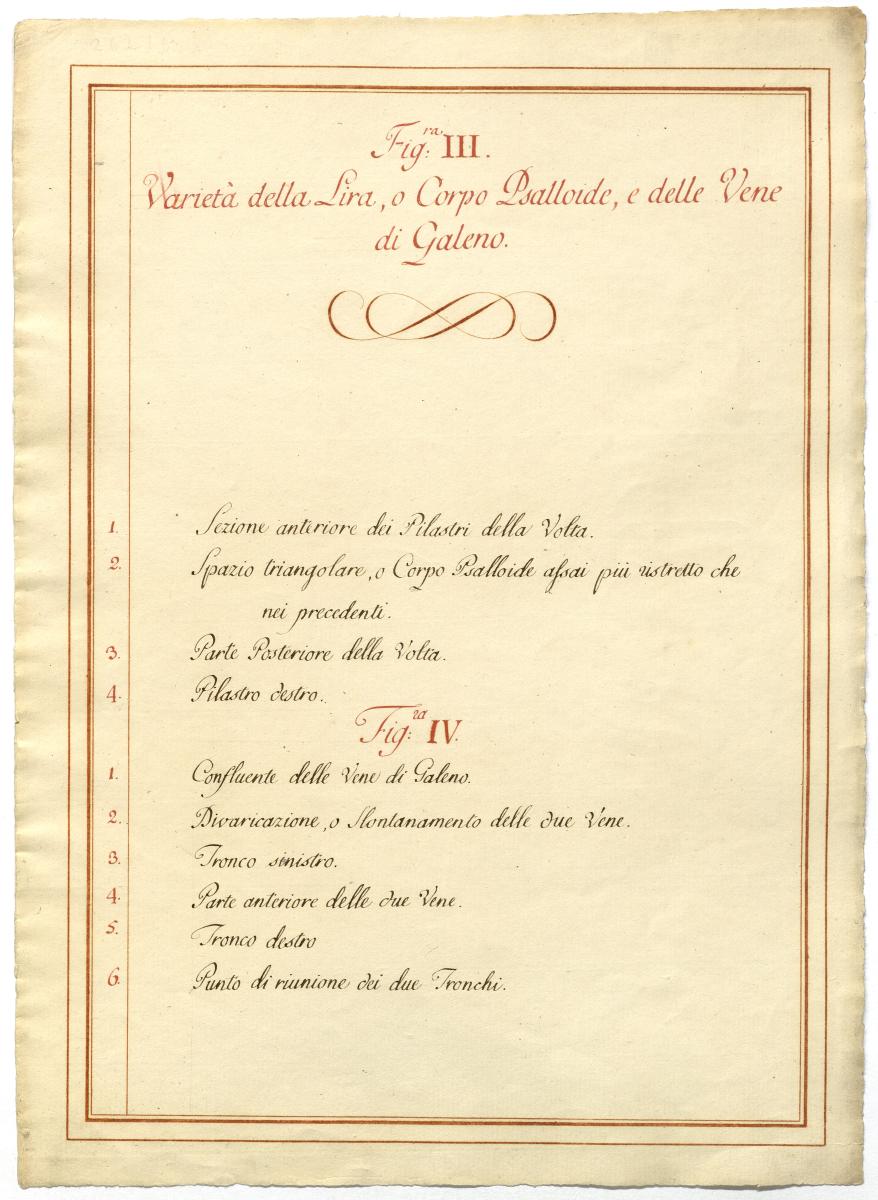 Fig:ra III.
Varietà della Lira, o Corpo Psalloide, e delle Vene
di Galeno.
1. Sezione anteriore dei Pilastri della Volta.
2. Spazio triangolare, o Corpo Psalloide assai più ristretto che
nei precedenti.
3. Parte Posteriore della Volta.
4. Pilastro destro.
Fig:ra IV.
1. Confluente delle Vene di Galeno.
2. Divaricazione, o Slontanamento delle due Vene.
3. Tronco sinistro.
4. Parte anteriore delle due Vene.
5. Tronco destro
6. Punto di riunione dei due Tronchi.